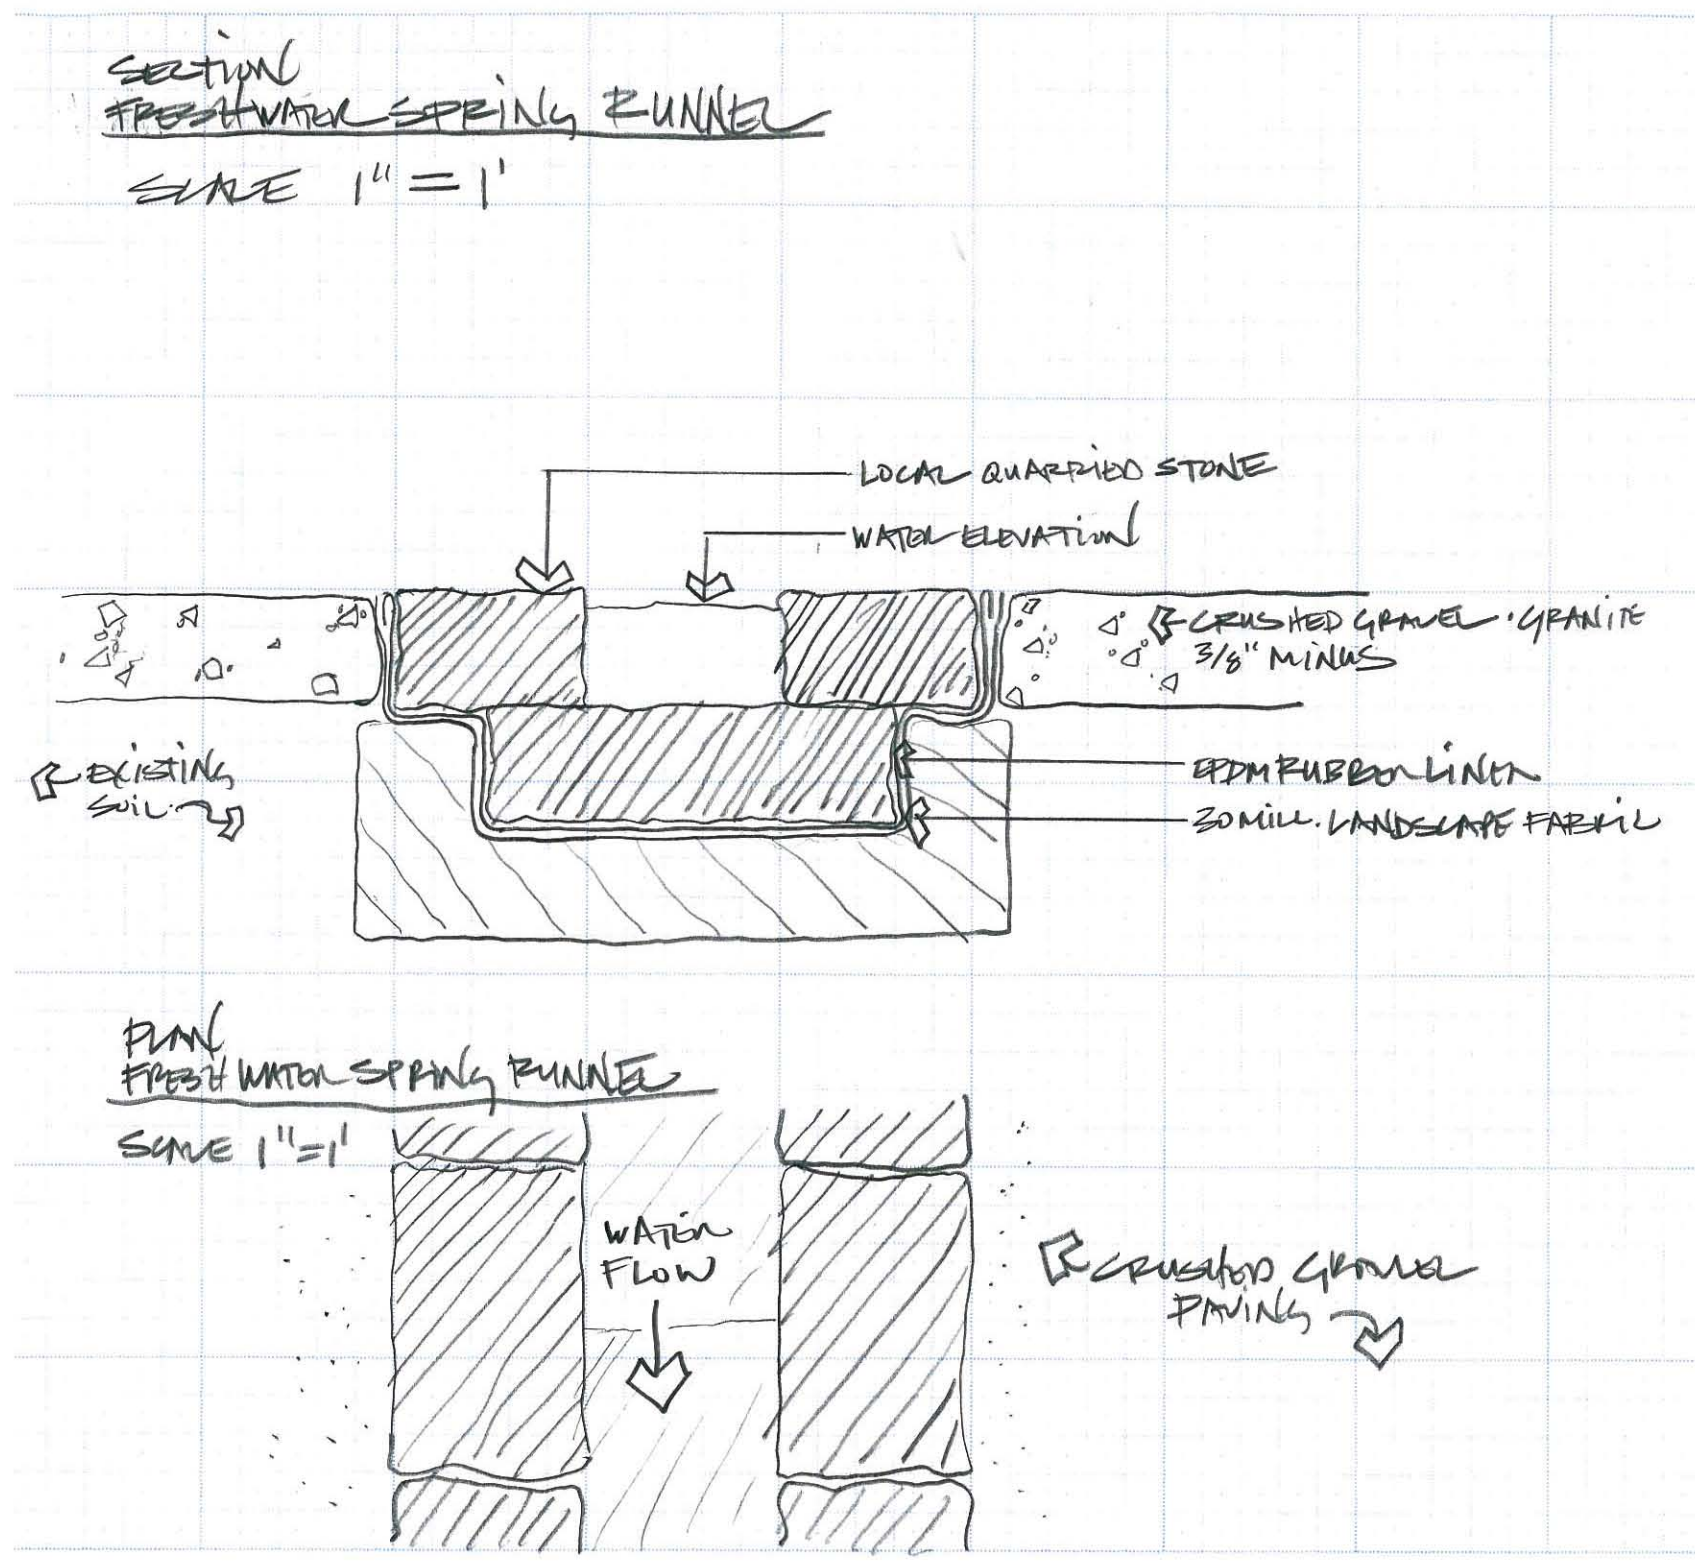 SECTION
FRESHWATER SPRING RUNNEL
SCALE 1"=1'
LOCAL QUARRIED STONE
WATER ELEVATION
CRUSHED GRAVEL · GRANITE
3/8" MINUS
EXISTING
SOIL
EPDM RUBBER LINER
30 MILL. LANDSCAPE FABRIC
PLAN
FRESHWATER SPRING RUNNEL
SCALE 1"=1'
WATER
FLOW
CRUSHED GRAVEL
PAVING